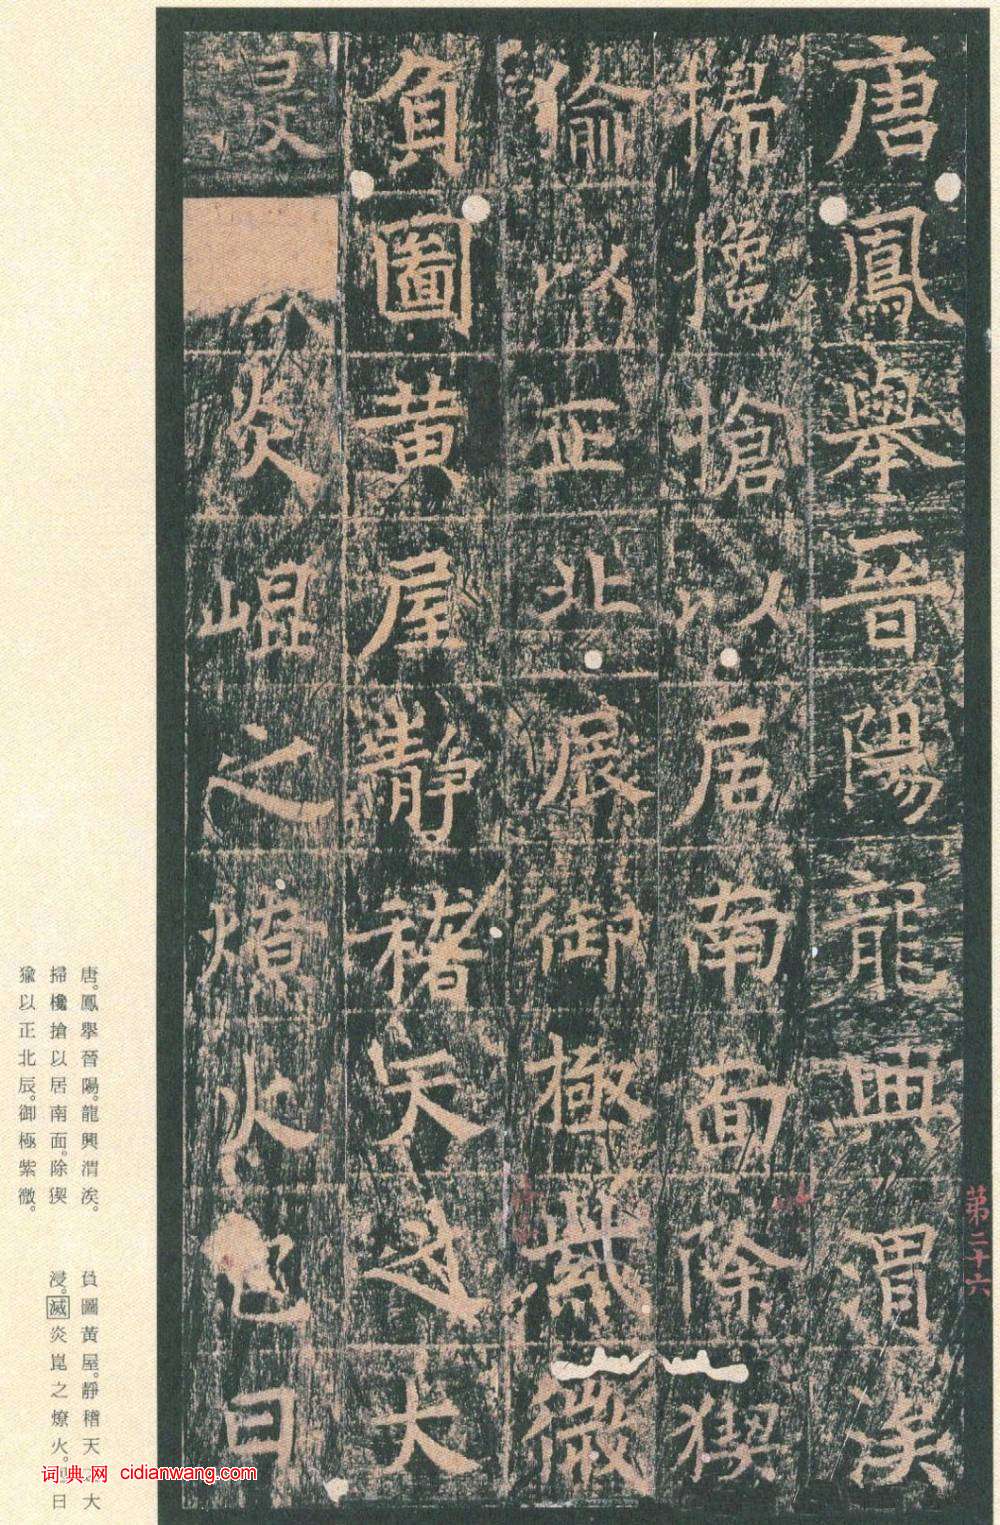 唐鳳舉晉陽龍興渭涘
掃攙搶以居南面除猰
㺄以正北辰御極紫微
負圖黃屋靜稽天之大
浸炎崐之燎火日
第二十六
唐。鳳舉晉陽。龍興渭涘。
掃欃搶以居南面。除猰
㺄以正北辰。御極紫微。
負圖黃屋。靜稽天之大
浸。滅炎崑之燎火。日
词典网 cidianwang.com